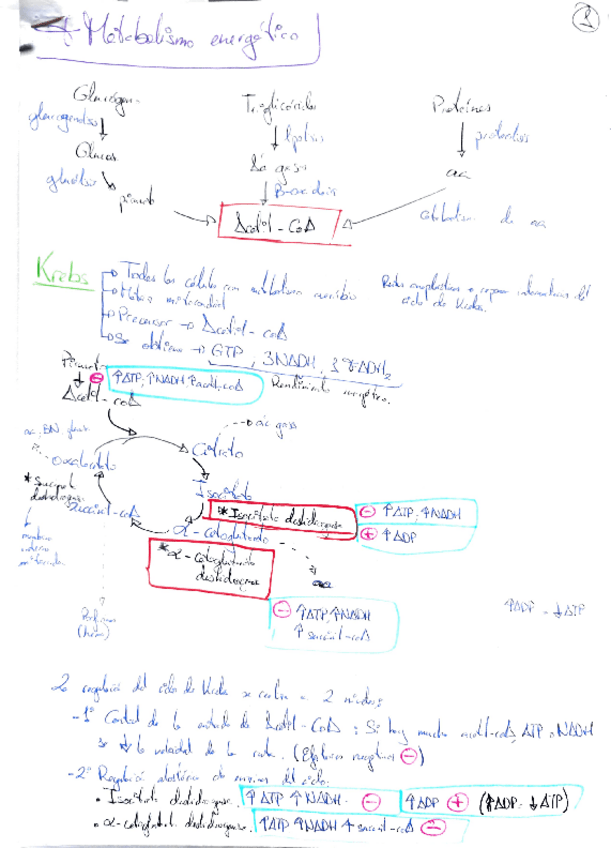 Metabolismo energético
Glucógeno Triglicéridos Proteínas
glucogenolisis lipolisis proteolisis
Glucosa ác grasos aa
glucólisis B-oxidación
piruvato catabolismo de aa
Acetil-CoA
Krebs
Todas las células con metabolismo aerobio
Matriz mitocondrial
Precursor → Acetil-coA
Se obtiene → GTP, 3NADH, 3 FADH2
Rendimiento energético.
Reacs anapleróticas → reponen intermediarios del
ciclo de Krebs.
Piruvato
⊖ ↑ATP, ↑NADH ↑acetil-coA
Acetil-coA
→ ác grasos
Citrato
Oxalacetato
Isocitrato
* Succinato
deshidrogenasa
↓
membrana
interna
mitocondrial
* Isocitrato deshidrogenasa
⊖ ↑ATP, ↑NADH
⊕ ↑ADP
Succinil-coA
α-cetoglutarato
* α-cetoglutarato
deshidrogenasa
aa
⊖ ↑ATP, ↑NADH
↑ succinil-coA
Porfirinas
(hem)
↑ADP = ↓ATP
La regulación del ciclo de Krebs se centra en 2 niveles:
-1º Control de la entrada de Acetil-CoA: Si hay mucho acetil-coA, ATP o NADH
se ↓ la velocidad de la ruta. (Efectores negativos ⊖)
-2º Regulación alostérica de enzimas del ciclo:
• Isocitrato deshidrogenasa. ↑ATP ↑NADH ⊖ ↑ADP ⊕ (↑ADP = ↓ATP)
• α-cetoglutarato deshidrogenasa. ↑ATP ↑NADH ↑ succinil-coA ⊖